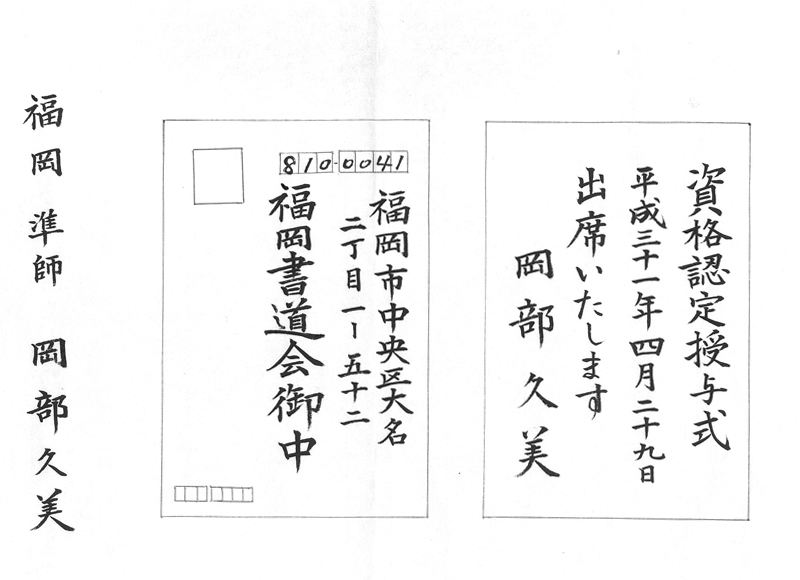 資格認定授与式
平成三十一年四月二十九日
出席いたします
岡部久美
810-0041
福岡市中央区大名
二丁目一ー五十二
福岡書道会御中
福岡 準師 岡部久美